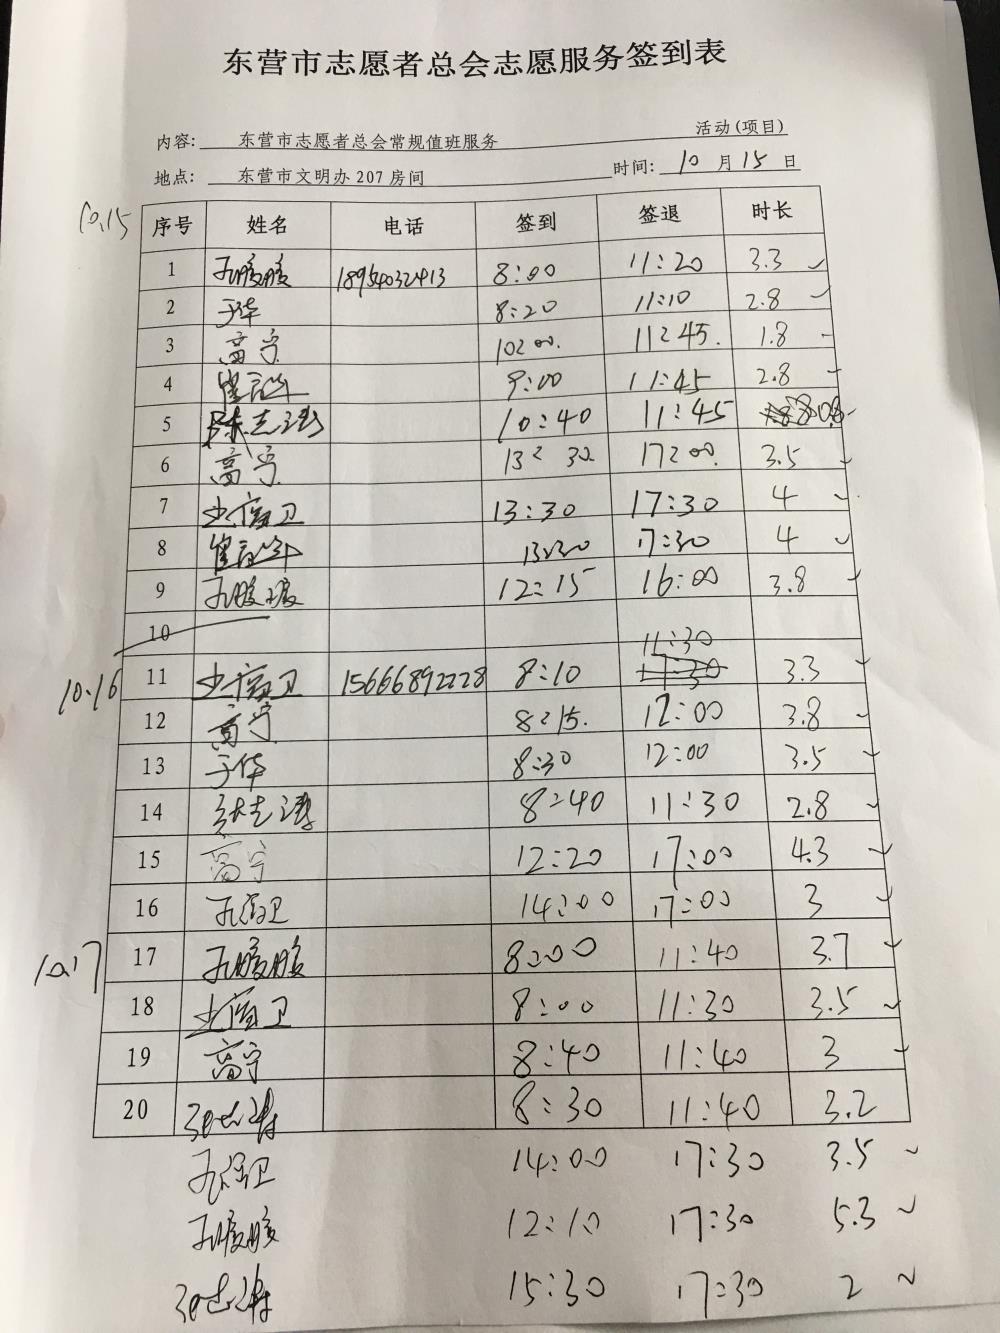 东营市志愿者总会志愿服务签到表
内容: 东营市志愿者总会常规值班服务 活动(项目)
地点: 东营市文明办 207 房间 时间: 10 月 15 日
10.15
序号 姓名 电话 签到 签退 时长
1 18954032413 8:00 11:20 3.3
2 于华 8:20 11:10 2.8
3 高宁 10:00. 11:45. 1.8
4 9:00 11:45 2.8
5 10:40 11:45 0.8
6 高宁 13:30 17:00. 3.5
7 13:30 17:30 4
8 13:30 17:30 4
9 12:15 16:00 3.8
10
11:30
10.16 11 15666892228 8:10 3.3
12 高宁 8:15. 12:00 3.8
13 于华 8:30 12:00 3.5
14 8:40 11:30 2.8
15 高宁 12:20 17:00 4.3
16 14:00 17:00 3
10.17 17 8:00 11:40 3.7
18 8:00 11:30 3.5
19 高宁 8:40 11:40 3
20 8:30 11:40 3.2
14:00 17:30 3.5
12:10 17:30 5.3
15:30 17:30 2